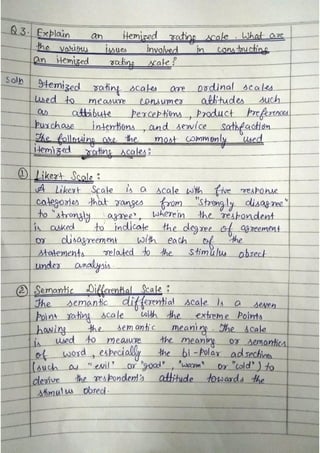 Q 3. Explain an itemized rating scale. What are
the various issues involved in constructing
an itemized rating scale?
Soln Itemized rating scales are ordinal scales
used to measure consumer attitudes such
as attribute perceptions, product preferences
purchase intentions, and service satisfaction
The following are the most commonly used
itemized rating scales:
① Likert Scale :
A Likert Scale is a scale with five response
categories that ranges from "strongly disagree"
to "strongly agree", wherein the respondent
is asked to indicate the degree of agreement
or disagreement with each of the
statements related to the stimulus object
under analysis
② Semantic Differential Scale :
The semantic differential scale is a seven
Point rating scale with the extreme Points
having the semantic meaning. The scale
is used to measure the meaning or semantics
of word, especially the bi-Polar adjectives
(such as "evil" or "good", "warm" or "cold") to
derive the respondent's attitude towards the
stimulus object.